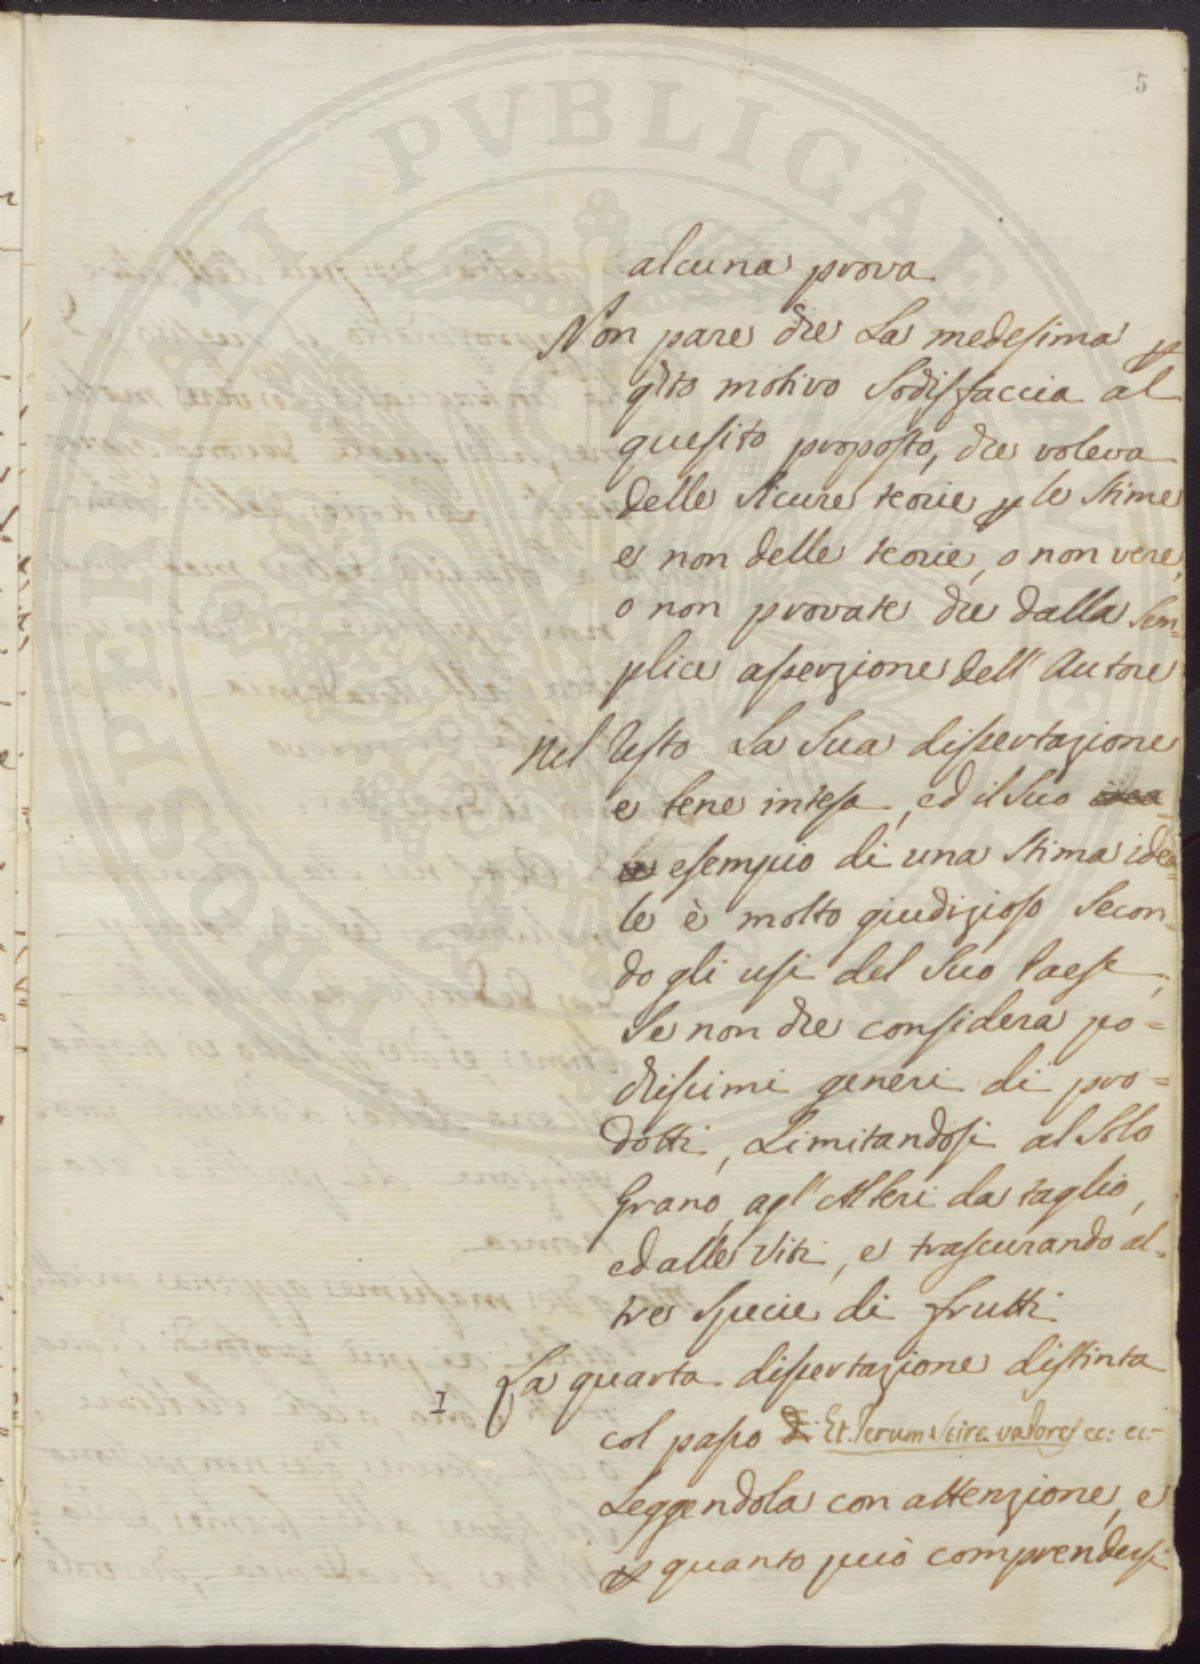 5
alcuna prova
Non pare che La medesima p
qsto motivo Sodisfaccia al
quesito proposto, che voleva
delle Sicure teorie p le Stime
e non delle teorie, o non vere,
o non provate che dalla Sem=
plice asserzione dell' Autore
Nel resto La Sua dissertazione
e bene intesa, ed il Suo
esempio di una Stima idea=
le è molto giudizioso Secon=
do gli usi del Suo Paese,
Se non che considera po=
chissimi generi di pro=
dotti, Limitandosi al Solo
Grano, agl' Alberi da taglio,
ed alle Viti, e trascurando al=
tre Specie di frutti
La quarta dissertazione distinta
I
col passo di Et. Rerum Scire valores ec: ec:
Leggendola con attenzione, e
p quanto può comprendersi
PROSPERITATI PVBLICAE